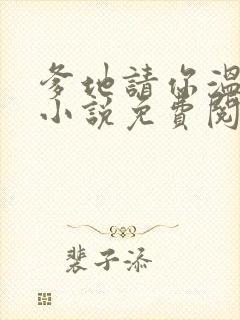 爹地請你溫
小說免費閱
裴子添